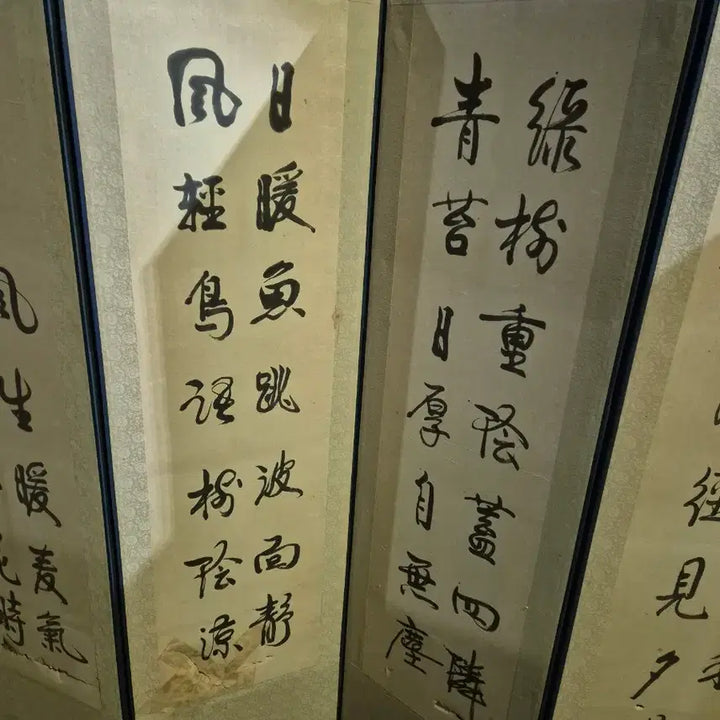 徑見夕
綠樹重陰蓋四隣
青苔日厚自無塵
日暖魚跳波面靜
風輕鳥語樹陰涼
風生暖麦氣
花時